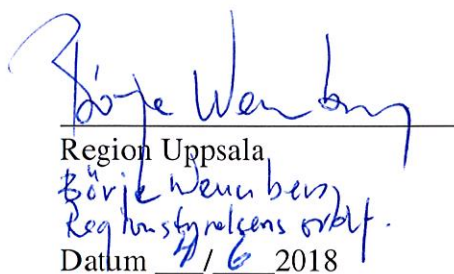 Börje Wennberg
Region Uppsala
Börje Wennberg
Regionstyrelsens ordf.
Datum 4/6 2018